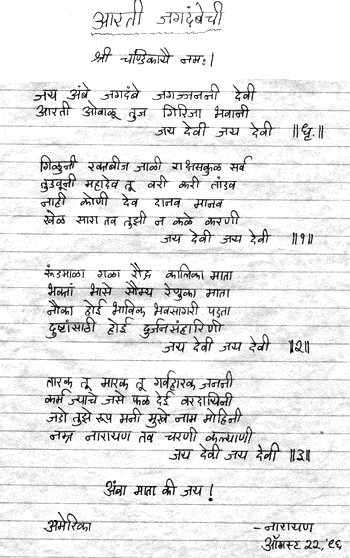 आरती जगदंबेची
श्री चण्डिकायै नमः।
जय अंबे जगदंबे जगज्जननी देवी
आरती ओवाळू तुज गिरिजा भवानी
जय देवी जय देवी ॥धृ.॥
गिळुनी रक्तबीज जाळी राक्षसकुळ सर्व
तुडवूनी महादेव तू वरी करी तांडव
नाही कोणी देव दानव मानव
खेळ सारा तव तुझी न कळे करणी
जय देवी जय देवी ॥१॥
रूंडमाळा गळा रौद्र कालिका माता
भक्तां भासे सौम्य रेणुका माता
नौका होई भाविक भवसागरी पडता
दुष्टांसाठी होई दुर्जनसंहारिणी
जय देवी जय देवी ॥२॥
तारक तू मारक तू गर्वहारक जननी
कर्म ज्याचे जसे फळ देई वरदायिनी
जडो तुझे रूप मनी मुखे नाम मोहिनी
नम्र नारायण तव चरणी कल्याणी
जय देवी जय देवी ॥३॥
अंबा माता की जय!
अमेरिका
- नारायण
ऑगस्ट २२,'९६